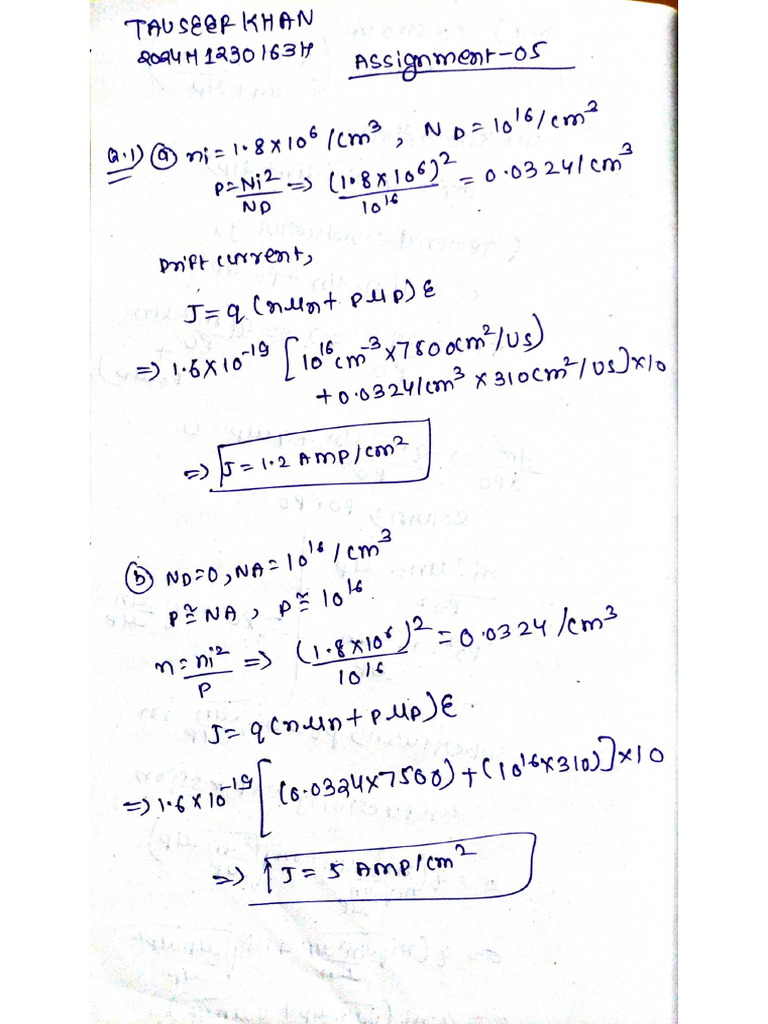 TAUSEEF KHAN
2024H1230163H
Assignment-05
Q.1) (a) ni = 1.8×10⁶ /cm³, ND = 10¹⁶/cm³
P = Ni²/ND => (1.8×10⁶)²/10¹⁶ = 0.0324/cm³
Drift current,
J = q(nμn + pμp)ε
=> 1.6×10⁻¹⁹ [10¹⁶cm⁻³×7500cm²/Vs)
+0.0324/cm³ × 310cm²/Vs]×10
=> J = 1.2 AMP/cm²
(b) ND=0, NA=10¹⁶/cm³
P≅NA, P≅10¹⁶
n = ni²/P => (1.8×10⁶)²/10¹⁶ = 0.0324/cm³
J = q(nμn + pμp)ε
=> 1.6×10⁻¹⁹ [(0.0324×7500)+(10¹⁶×310)]×10
=> J = 5 AMP/cm²